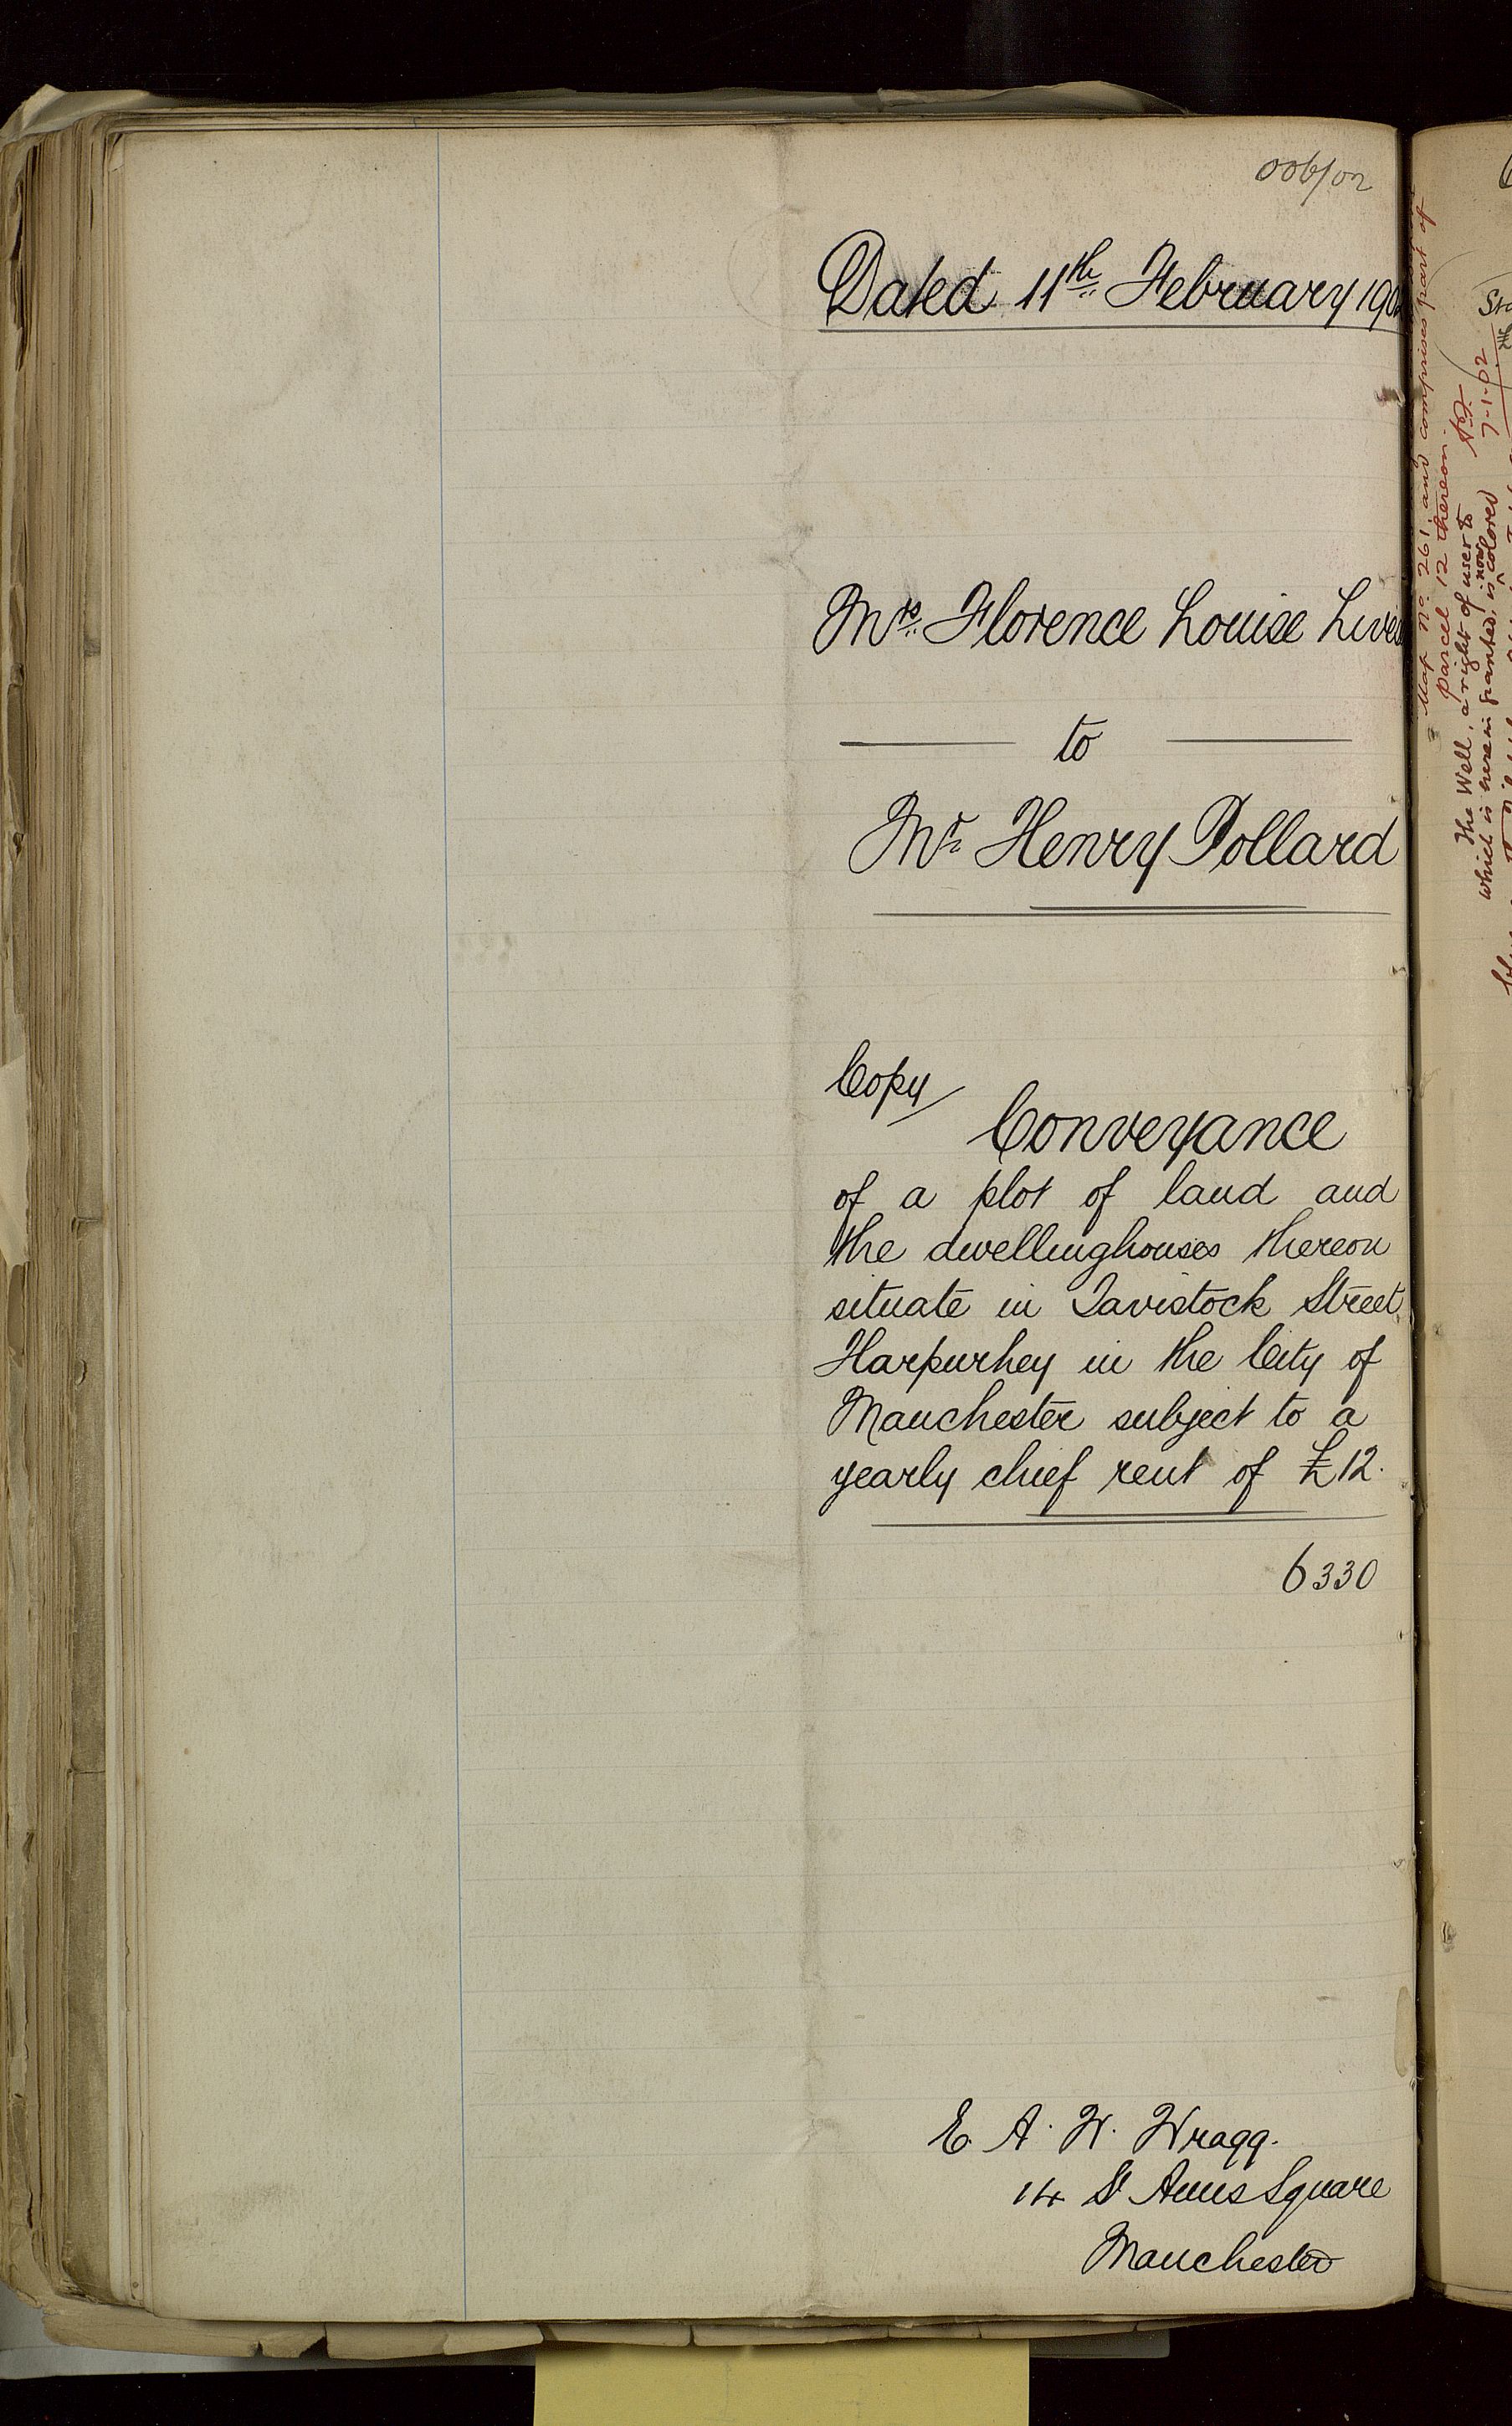 006/02
Dated 11th February 190
Mrs. Florence Louise Lives
to
Mr. Henry Pollard
Copy/
Conveyance
of a plot of land and
the dwellinghouses thereon
situate in Tavistock Street
Harpurhey in the City of
Manchester subject to a
yearly chief rent of £12.
6330
E. A. W. Wragg.
14 St Anns Square
Manchester
Map No. 261, and comprises part of
parcel 12 thereon.
7-1-02
The Well, a right of user to
which is herein granted, is now colored